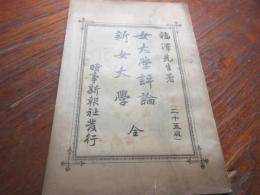 福澤先生著
(二十五版)
女大學評論
新女大學
全
時事新報社發行